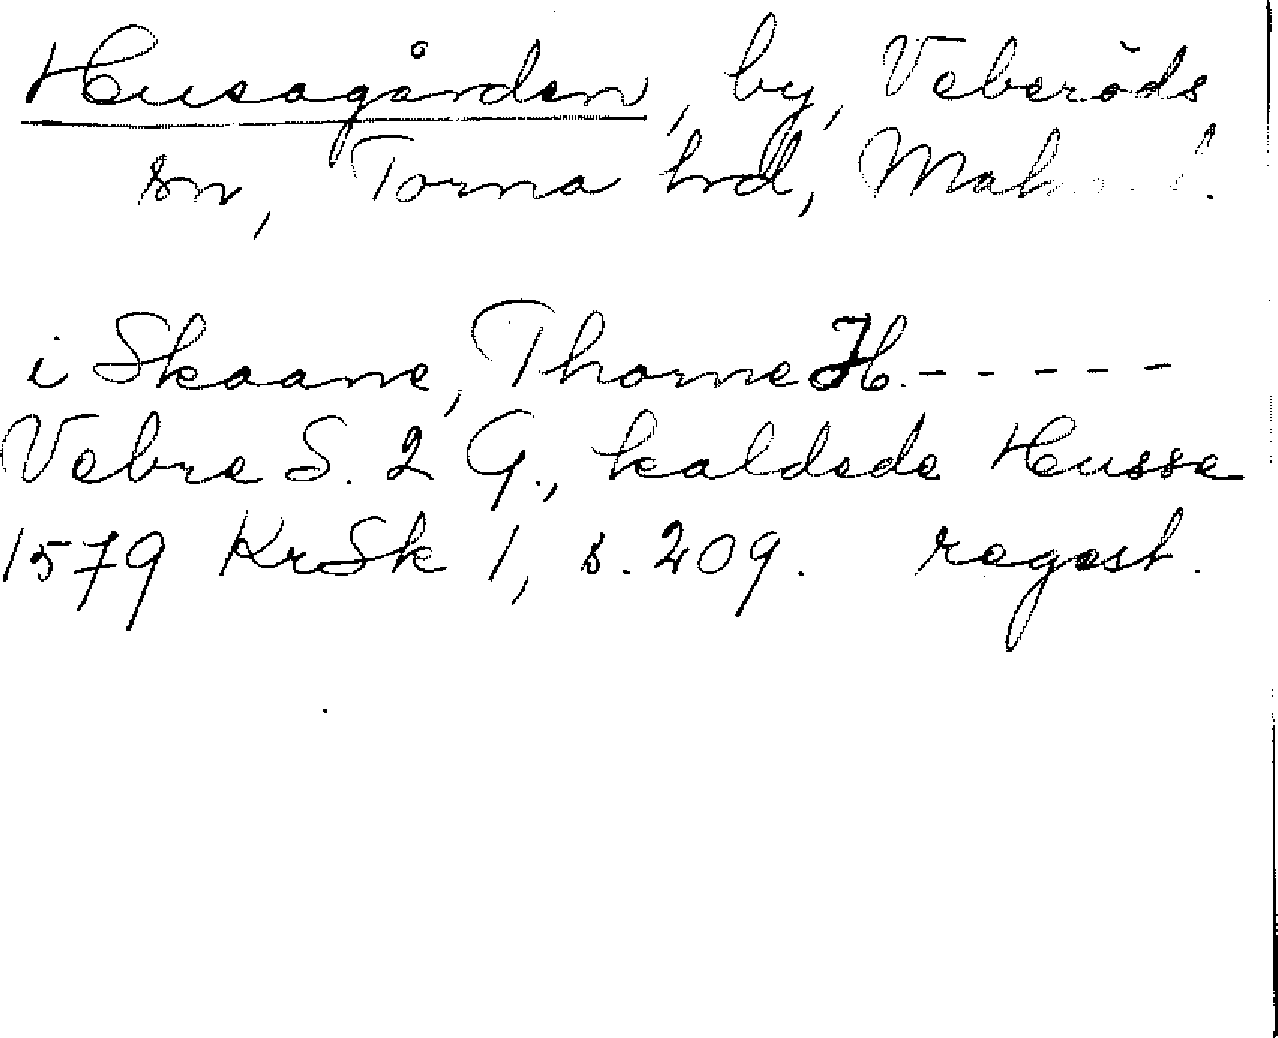 Husagården, by, Veberöds
sn, Torna hrd,
i Skaane, Thorne H. - - - - -
Vebre S. 2 G., kaldede Husse
1579 KrSk 1, s. 209. regest.